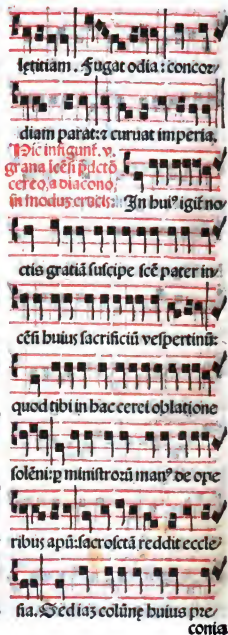 letitiam. Fugat odia: concor⸗
diam parat: ⁊ curuat imperia.
Hic infigunt̃. v.
grana incẽsi p̃dictõ
cereo, a diacono,
in moduʒ crucis: In huiꝰ igit̃ no⸗
ctis gratiã suscipe scẽ pater in⸗
cẽsi huius sacrificiũ vespertinũ:
quod tibi in hac cerei oblatione
solẽni: ꝑ ministrorũ manꝰ de ope⸗
ribus apũ: sacrosctã reddit eccle⸗
sia. Sed iaʒ colũne huius pre⸗
conia